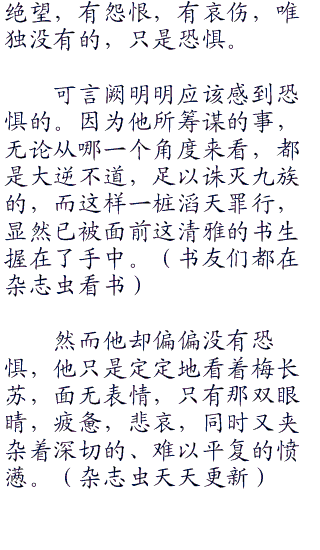 绝望，有怨恨，有哀伤，唯
独没有的，只是恐惧。
可言阙明明应该感到恐
惧的。因为他所筹谋的事，
无论从哪一个角度来看，都
是大逆不道，足以诛灭九族
的，而这样一桩滔天罪行，
显然已被面前这清雅的书生
握在了手中。（书友们都在
杂志虫看书）
然而他却偏偏没有恐
惧，他只是定定地看着梅长
苏，面无表情，只有那双眼
睛，疲惫，悲哀，同时又夹
杂着深切的、难以平复的愤
懑。（杂志虫天天更新）